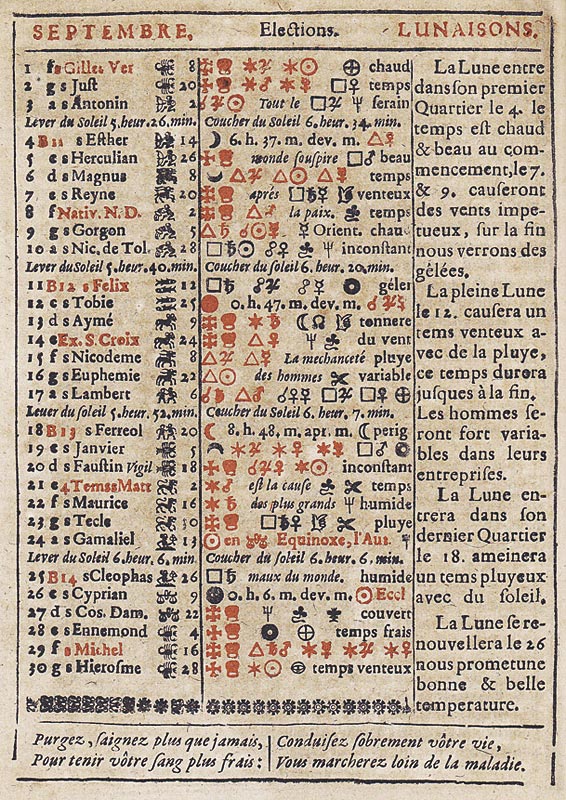 SEPTEMBRE. Elections. LUNAISONS.
1 f s Gilles Ver 8 ☌ chaud
2 g s Just 20 temps
3 a s Antonin 2 Tout le serain
Lever du Soleil 5. heur. 26. min. Coucher du Soleil 6. heur. 34. min.
4 B11 s Esther 14 6. h. 37. m. dev. m.
5 c s Herculian 26 monde souspire beau
6 d s Magnus 8 temps
7 e s Reyne 20 après venteux
8 f Nativ. N. D. 2 la paix. temps
9 g s Gorgon 15 Orient. chau
10 a s Nic. de Tol. 28 inconstant
Lever du Soleil 5. heur. 40. min. Coucher du soleil 6. heur. 20. min.
11 B12 s Felix 12 géler
12 c s Tobie 25 0. h. 47. m. dev. m.
13 d s Aymé 9 tonnere
14 e Ex. S. Croix 24 du vent
15 f s Nicodeme 8 La mechanceté pluye
16 g s Euphemie 22 des hommes variable
17 a s Lambert 6
Leuer du soleil 5. heur. 52. min. Coucher du Soleil 6. heur. 7. min.
18 B13 s Ferreol 20 8. h. 48. m. apr. m. perig
19 c s Janvier 5
20 d s Faustin Vigil 18 inconstant
21 e 4 Temss Matt 2 est la cause temps
22 f s Maurice 16 des plus grands humide
23 g s Tecle 30 pluye
24 a s Gamaliel 13 en Equinoxe, l'Aut.
Lever du Soleil 6. heur. 6. min. Coucher du soleil 6. heur. 6. min.
25 B14 s Cleophas 26 maux du monde. humide
26 c s Cyprian 9 0. h. 6. m. dev. m. Eccl
27 d s Cos. Dam. 22 couvert
28 e s Ennemond 4 temps frais
29 f s Michel 16
30 g s Hierosme 28 temps venteux
La Lune entre
dans son premier
Quartier le 4. le
temps est chaud
& beau au com-
mencement, le 7.
& 9. causeront
des vents impe-
tueux, sur la fin
nous verrons des
gêlées.
La pleine Lune
le 12. causera un
tems venteux a-
vec de la pluye,
ce temps durera
jusques à la fin.
Les hommes se-
ront fort varia-
bles dans leurs
entreprises.
La Lune en-
trera dans son
dernier Quartier
le 18. ameinera
un tems pluyeux
avec du soleil.
La Lune se re-
nouvellera le 26
nous promet une
bonne & belle
temperature.
Purgez, saignez plus que jamais,
Pour tenir vôtre sang plus frais:
Conduisez sobrement vôtre vie,
Vous marcherez loin de la maladie.